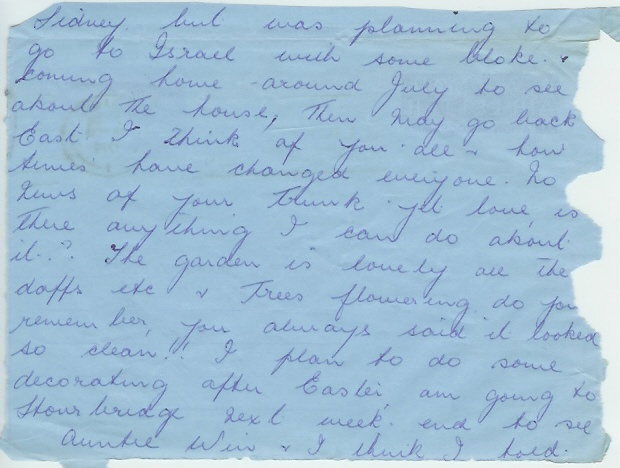 Sidney, but was planning to
go to Israel with some bloke. &
coming home around July to see
about the house, then may go back
East. I think of you all & how
times have changed everyone. No
news of your trunk yet love, is
there anything I can do about
it.? The garden is lovely all the
daffs etc & Trees flowering do you
remember, you always said it looked
so clean!! I plan to do some
decorating after Easter, am going to
Stourbridge next week end to see
Auntie Win & I think I told